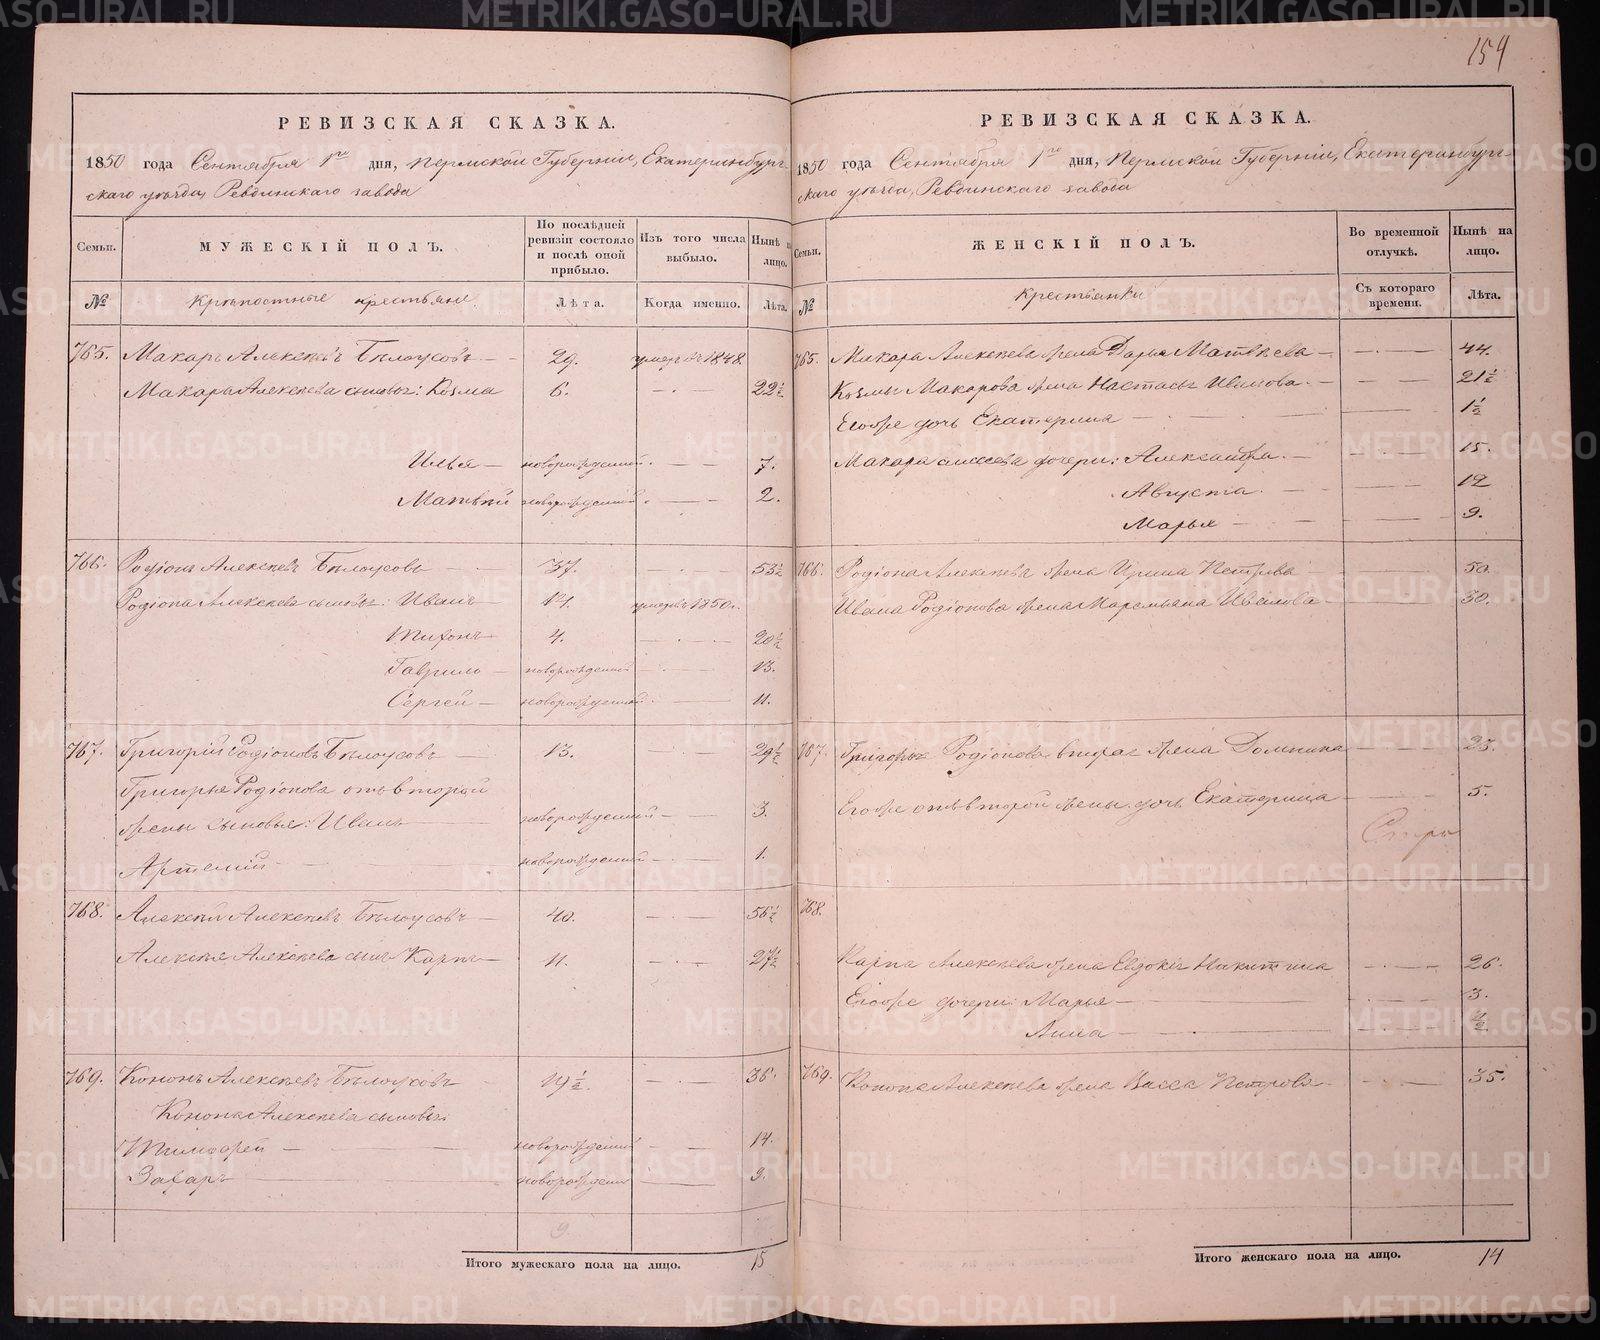 154
РЕВИЗСКАЯ СКАЗКА.
1850 года Сентября 1го дня, Пермской Губерніи, Екатеринбург-
скаго уѣзда, Ревдинскаго завода
Семьи.
МУЖЕСКІЙ ПОЛЪ.
По послѣдней
ревизіи состояло
и послѣ оной
прибыло.
Изъ того числа
выбыло.
Нынѣ н
лицо.
№
Крѣпостные крестьяне
Лѣта.
Когда именно.
Лѣта.
765. Макаръ Алексѣевъ Бѣлоусовъ 29. умеръ въ 1848.
Макара Алексѣева сыновья: Козма 6. 22½
Илья новорожденный. 7.
Матвѣй новорожденный. 2.
766. Родіонъ Алексѣевъ Бѣлоусовъ 37. 53½
Родіона Алексѣева сыновья: Иванъ 14. умеръ въ 1850.
Тихонъ 4. 20½
Гаврило новорожденный 13.
Сергей новорожденный 11.
767. Григорій Родіоновъ Бѣлоусовъ 13. 29½
Григорья Родіонова отъ второй
жены сыновья: Иванъ новорожденный 3.
Артемій новорожденный 1.
768. Алексѣй Алексѣевъ Бѣлоусовъ 40. 56½
Алексѣя Алексѣева сынъ Карпъ 11. 27½
769. Кононъ Алексѣевъ Бѣлоусовъ 19½. 36.
Конона Алексѣева сыновья:
Тимофей новорожденный 14.
Захаръ новорожденный 9.
9
Итого мужескаго пола на лицо. 15
РЕВИЗСКАЯ СКАЗКА.
1850 года Сентября 1го дня, Пермской Губерніи, Екатеринбург-
скаго уѣзда, Ревдинскаго завода
Семьи.
ЖЕНСКІЙ ПОЛЪ.
Во временной
отлучкѣ.
Нынѣ на
лицо.
№
Крестьянки
Съ котораго
времени.
Лѣта.
765. Макара Алексѣева жена Дарья Матвѣева 44.
Козмы Макарова жена Настасья Иванова. 21½
Егоже дочь Екатерина 1½
Макара Алексѣева дочери: Александра. 15.
Августа. 12
Марья 9.
766. Родіона Алексѣева жена Ирина Петрова 50.
Ивана Родіонова жена Маремьяна Иванова 30.
767. Григорья Родіонова вторая жена Домнина 25.
Егоже отъ второй жены дочь Екатерина 5.
768.
Карпа Алексѣева жена Евдокія Никитина 26.
Егоже дочери: Марья 3.
Анна ½.
769. Конона Алексѣева жена Васса Петрова 35.
Итого женскаго пола на лицо. 14
METRIKI.GASO-URAL.RU